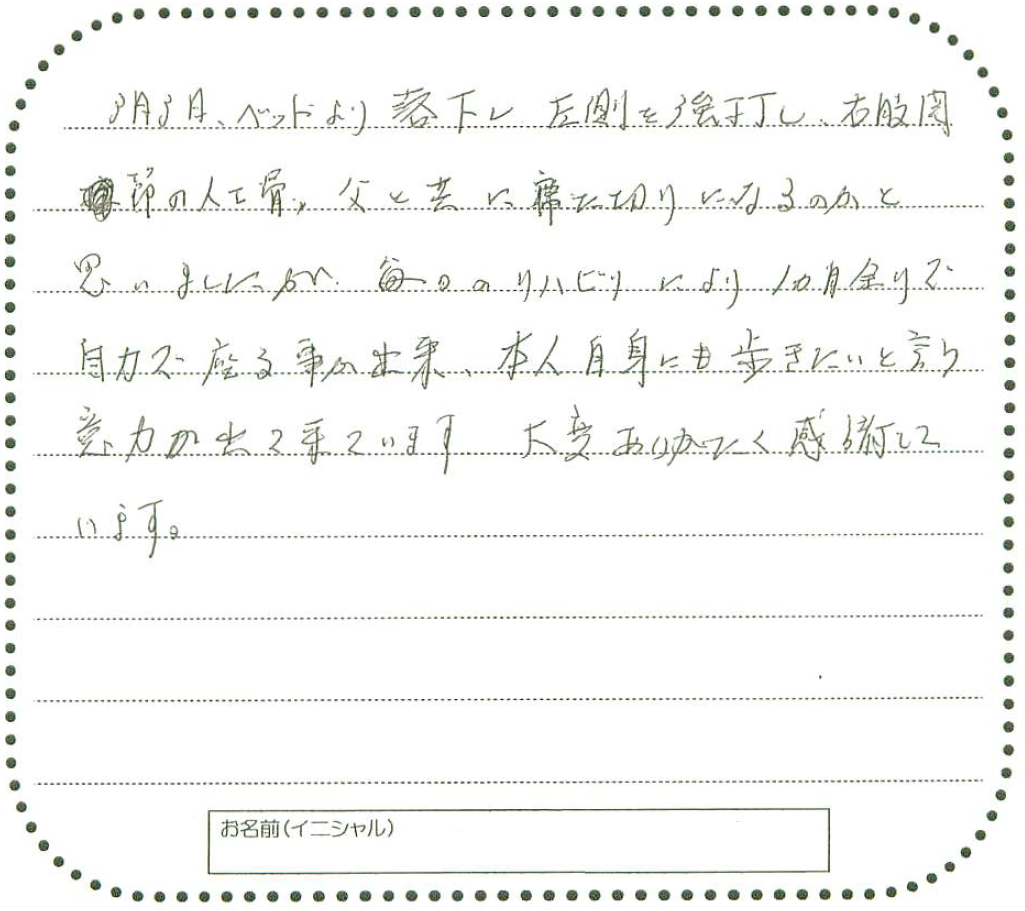 3月3日、ベットより落下し 左側を強打し、右股関
節の人工骨、父と共に寝た切りになるのかと
思いましたが、毎日のリハビリにより1カ月余りで
自力で座る事が出来、本人自身にも歩きたいと言う
意力が出て来ています 大変ありがたく感謝して
います。
お名前(イニシャル)